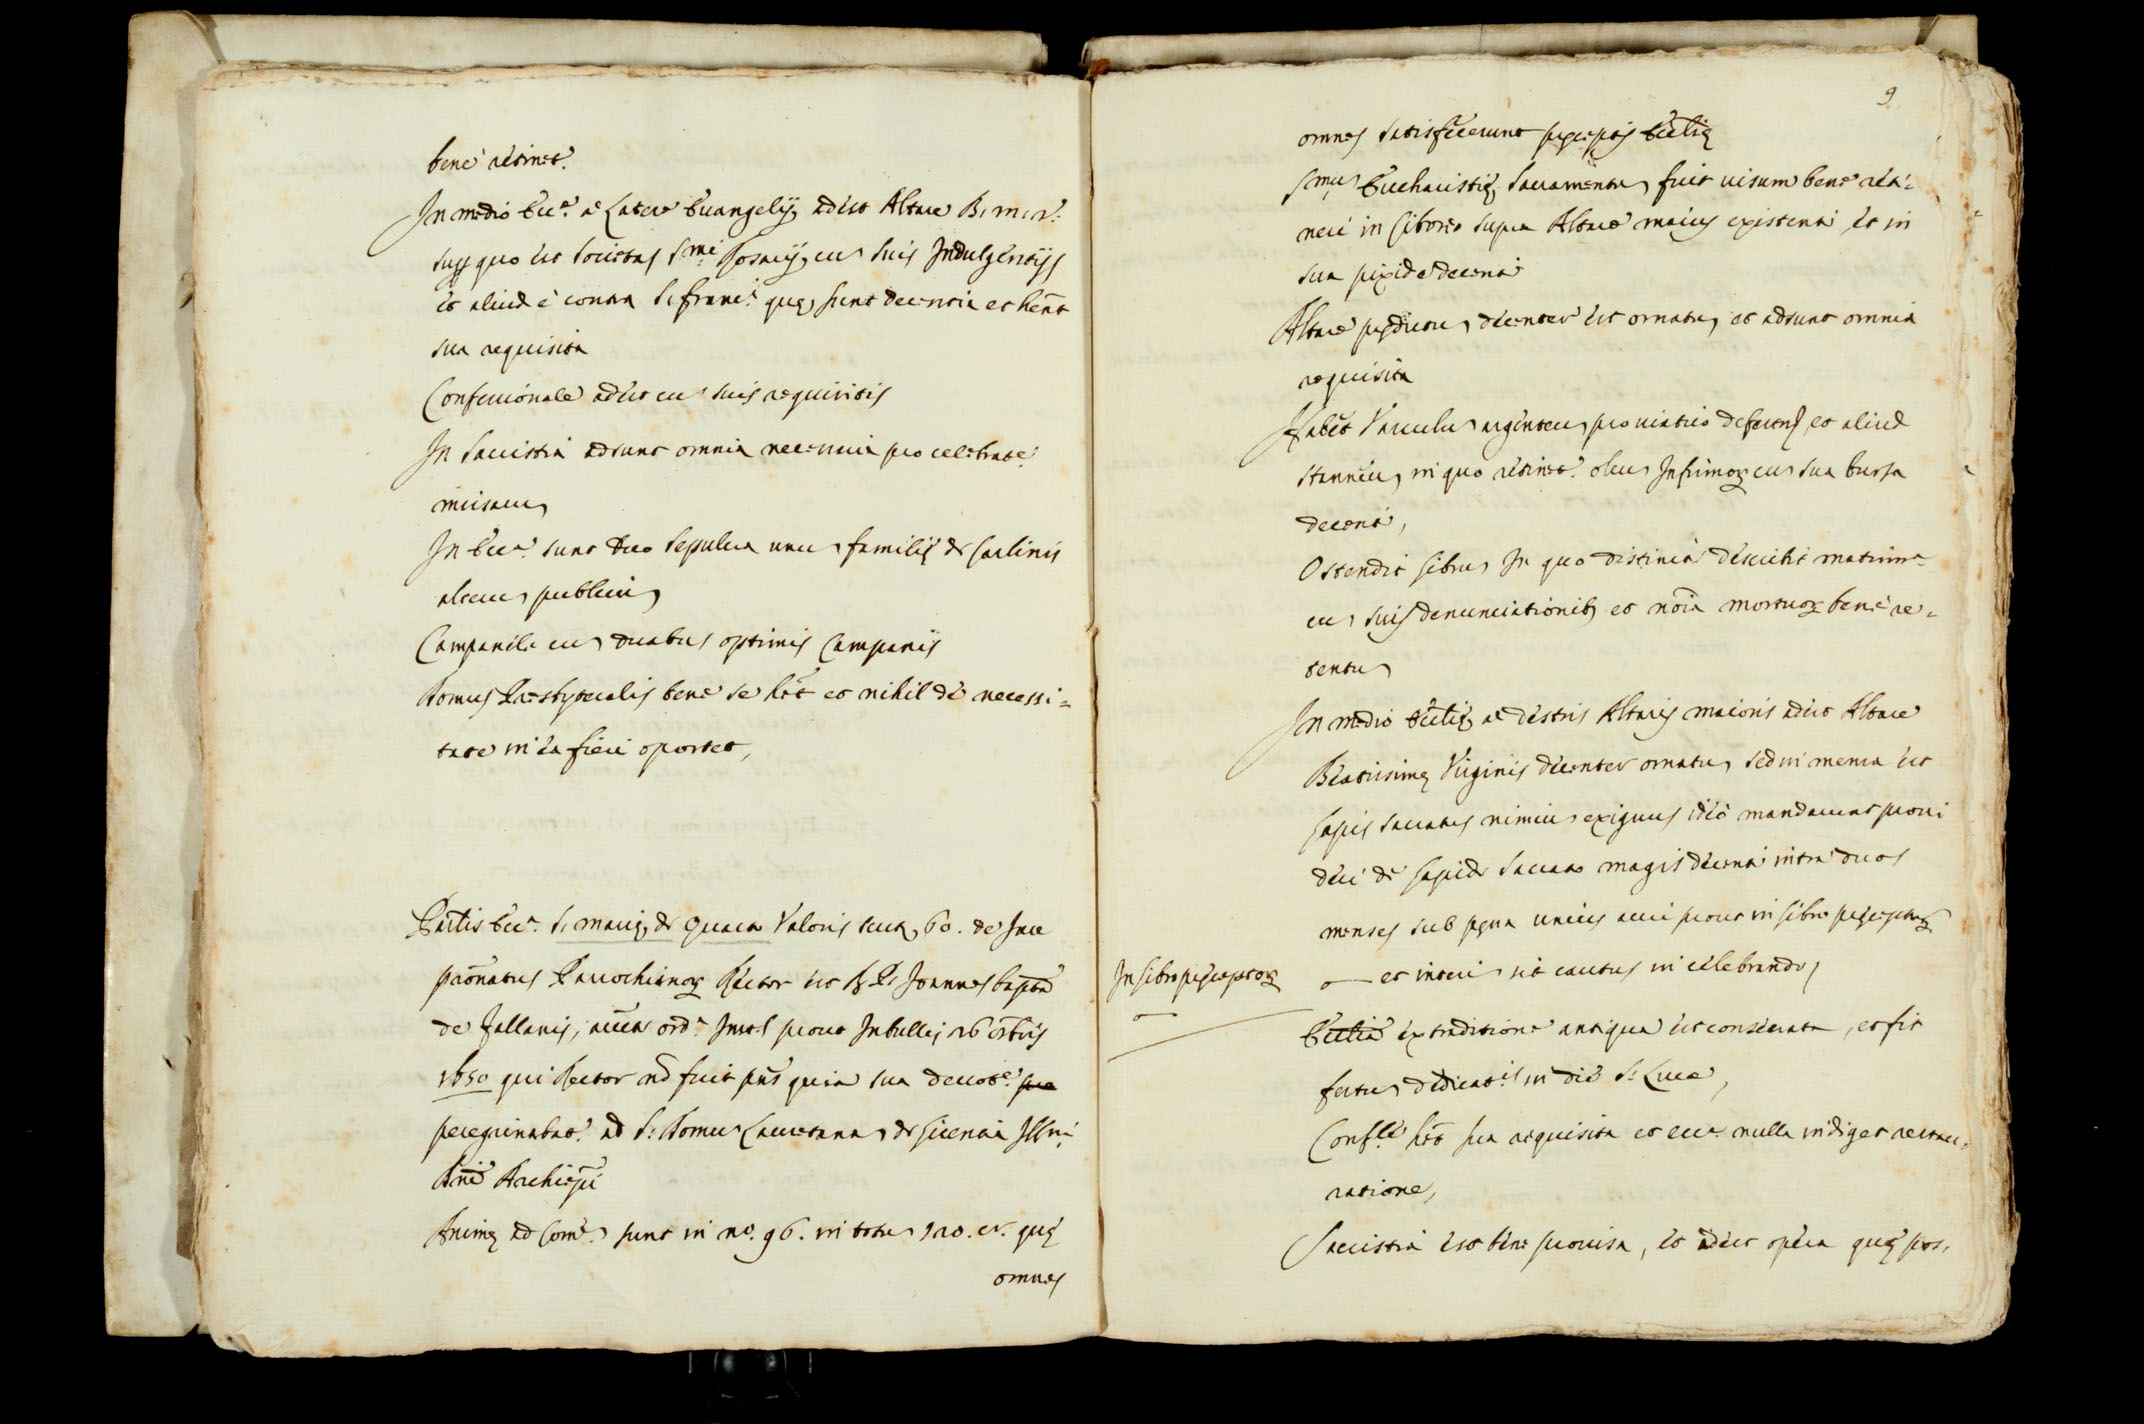 bene retinet.
In medio Ecc.a a Latere Euangelij adest Altare B. m. V.
sup quo est Societas S.mi Rosarij, cu suis Indulgentijs
et aliud è contra S. Franc.i que sunt decentia et hent
sua requisita
Confessionale adest cu suis requisitis
In Sacristia adsunt omnia necessaria pro celebrat.e
missaru
In Ecc.a sunt duo sepulcra unu familie de Carlinis
alteru publicu
Campanile cu duabus optimis Campanis
Domus Presbyteralis bene se het et nihil de necessi=
tate in ea fieri oportet,
Partis Ecc.a S. marie, de Quarta Valoris scut. 60. de Jure
pronatus Parochianor Rector est R. P. Joannes bapta
de Fallanis, auctate ord.a Inst. prout In bullis 26 octbris
1650 qui Rector nd fuit pns quia sua deuot.e sua
peregrinabat. ad S. Domu Lauretana, de licentia Ill.mi
Dni Archiepi
Anime ad Com.e sunt in n.o 96. in totu 120. cr. que
omnes
9
omnes satisfecerunt preceptis Ecclie
S.mu Eucharistie Sacramentu, fuit uisum bene reti=
neri in Ciborio supra Altare maius existenti et in
sua pixide decenti
Altare predictu, decenter est ornatu, et adsunt omnia
requisita
Habet Vasculu argenteu, pro uiatico deferend, et aliud
stanneu, in quo retinet. oleu Infirmor cu sua bursa
decenti,
Ostendit libru In quo distincte describit matrim.a
cu suis denunciationib. et noia mortuor bene re=
tentu
In medio Ecclie a dextris Altaris maioris adest Altare
Beatissime Virginis decenter ornatu, sed in mensa est
lapis sacratus nimiu exiguus ideo mandauerunt proui
deri de lapide sacrato magis decenti intra duos
menses sub pena unius auri prout in libro preceptor
In libro preceptor
et interi sit cautus in celebrando,
Ecclia ex traditione antiqua est consecrata, et fit
festu dedicat.is in die S. Luce,
Conf.le het sua requisita et ecc.a nulla indiget restau=
ratione,
Sacristia est bene prouisa, et adest opera que pos,